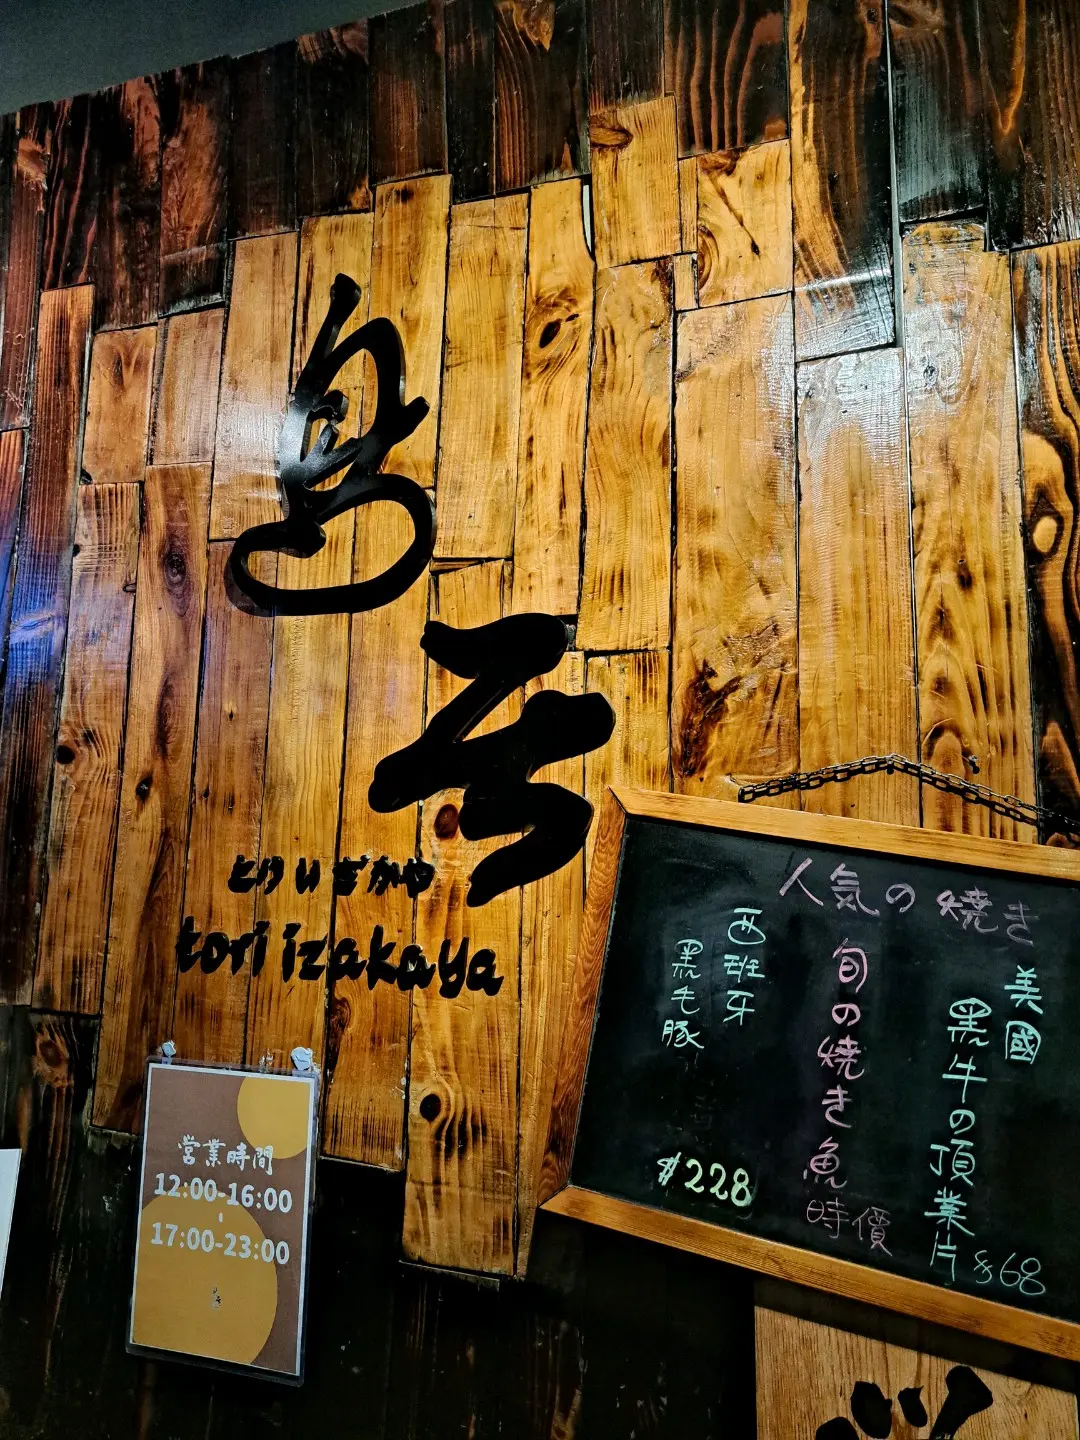 鳥
とりいざかや
tori izakaya
営業時間
12:00-16:00
17:00-23:00
人気の焼き
美國
黑牛の頂業片 $68
旬の焼き魚
時價
西班牙
黑毛豚
$228